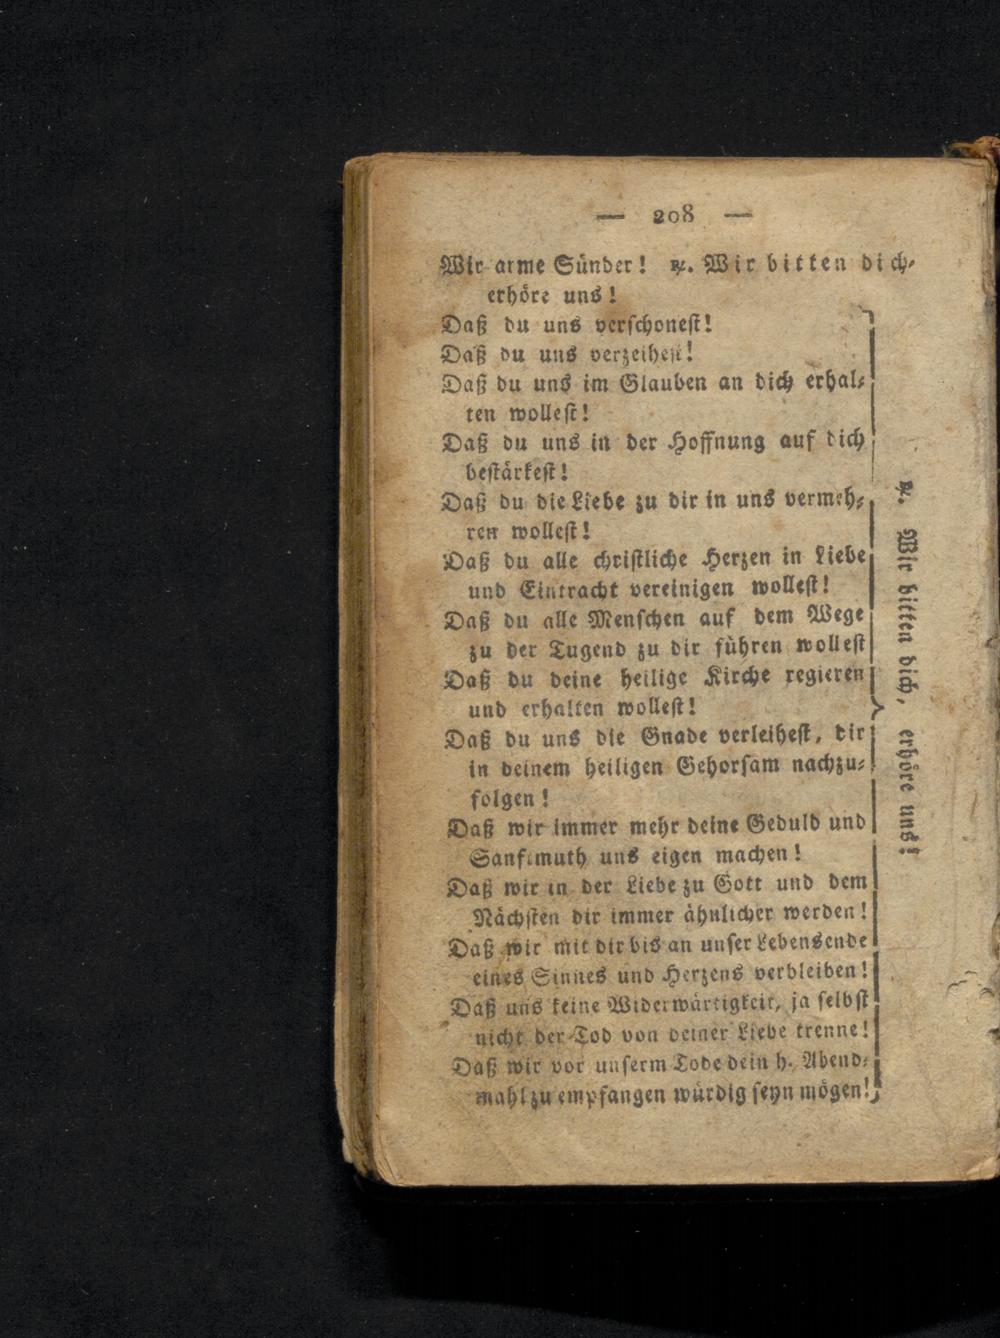 — 208 —
Wir arme Sünder! ℟. Wir bitten dich,
erhöre uns!
Daß du uns verschonest!
Daß du uns verzeihest!
Daß du uns im Glauben an dich erhal-
ten wollest!
Daß du uns in der Hoffnung auf dich
bestärkest!
Daß du die Liebe zu dir in uns vermeh-
ren wollest!
Daß du alle christliche Herzen in Liebe
und Eintracht vereinigen wollest!
Daß du alle Menschen auf dem Wege
zu der Tugend zu dir führen wollest
Daß du deine heilige Kirche regieren
und erhalten wollest!
Daß du uns die Gnade verleihest, dir
in deinem heiligen Gehorsam nachzu-
folgen!
Daß wir immer mehr deine Geduld und
Sanftmuth uns eigen machen!
Daß wir in der Liebe zu Gott und dem
Nächsten dir immer ähnlicher werden!
Daß wir mit dir bis an unser Lebensende
eines Sinnes und Herzens verbleiben!
Daß uns keine Widerwärtigkeit, ja selbst
nicht der Tod von deiner Liebe trenne!
Daß wir vor unserm Tode dein h. Abend-
mahl zu empfangen würdig seyn mögen!
℟. Wir bitten dich, erhöre uns!